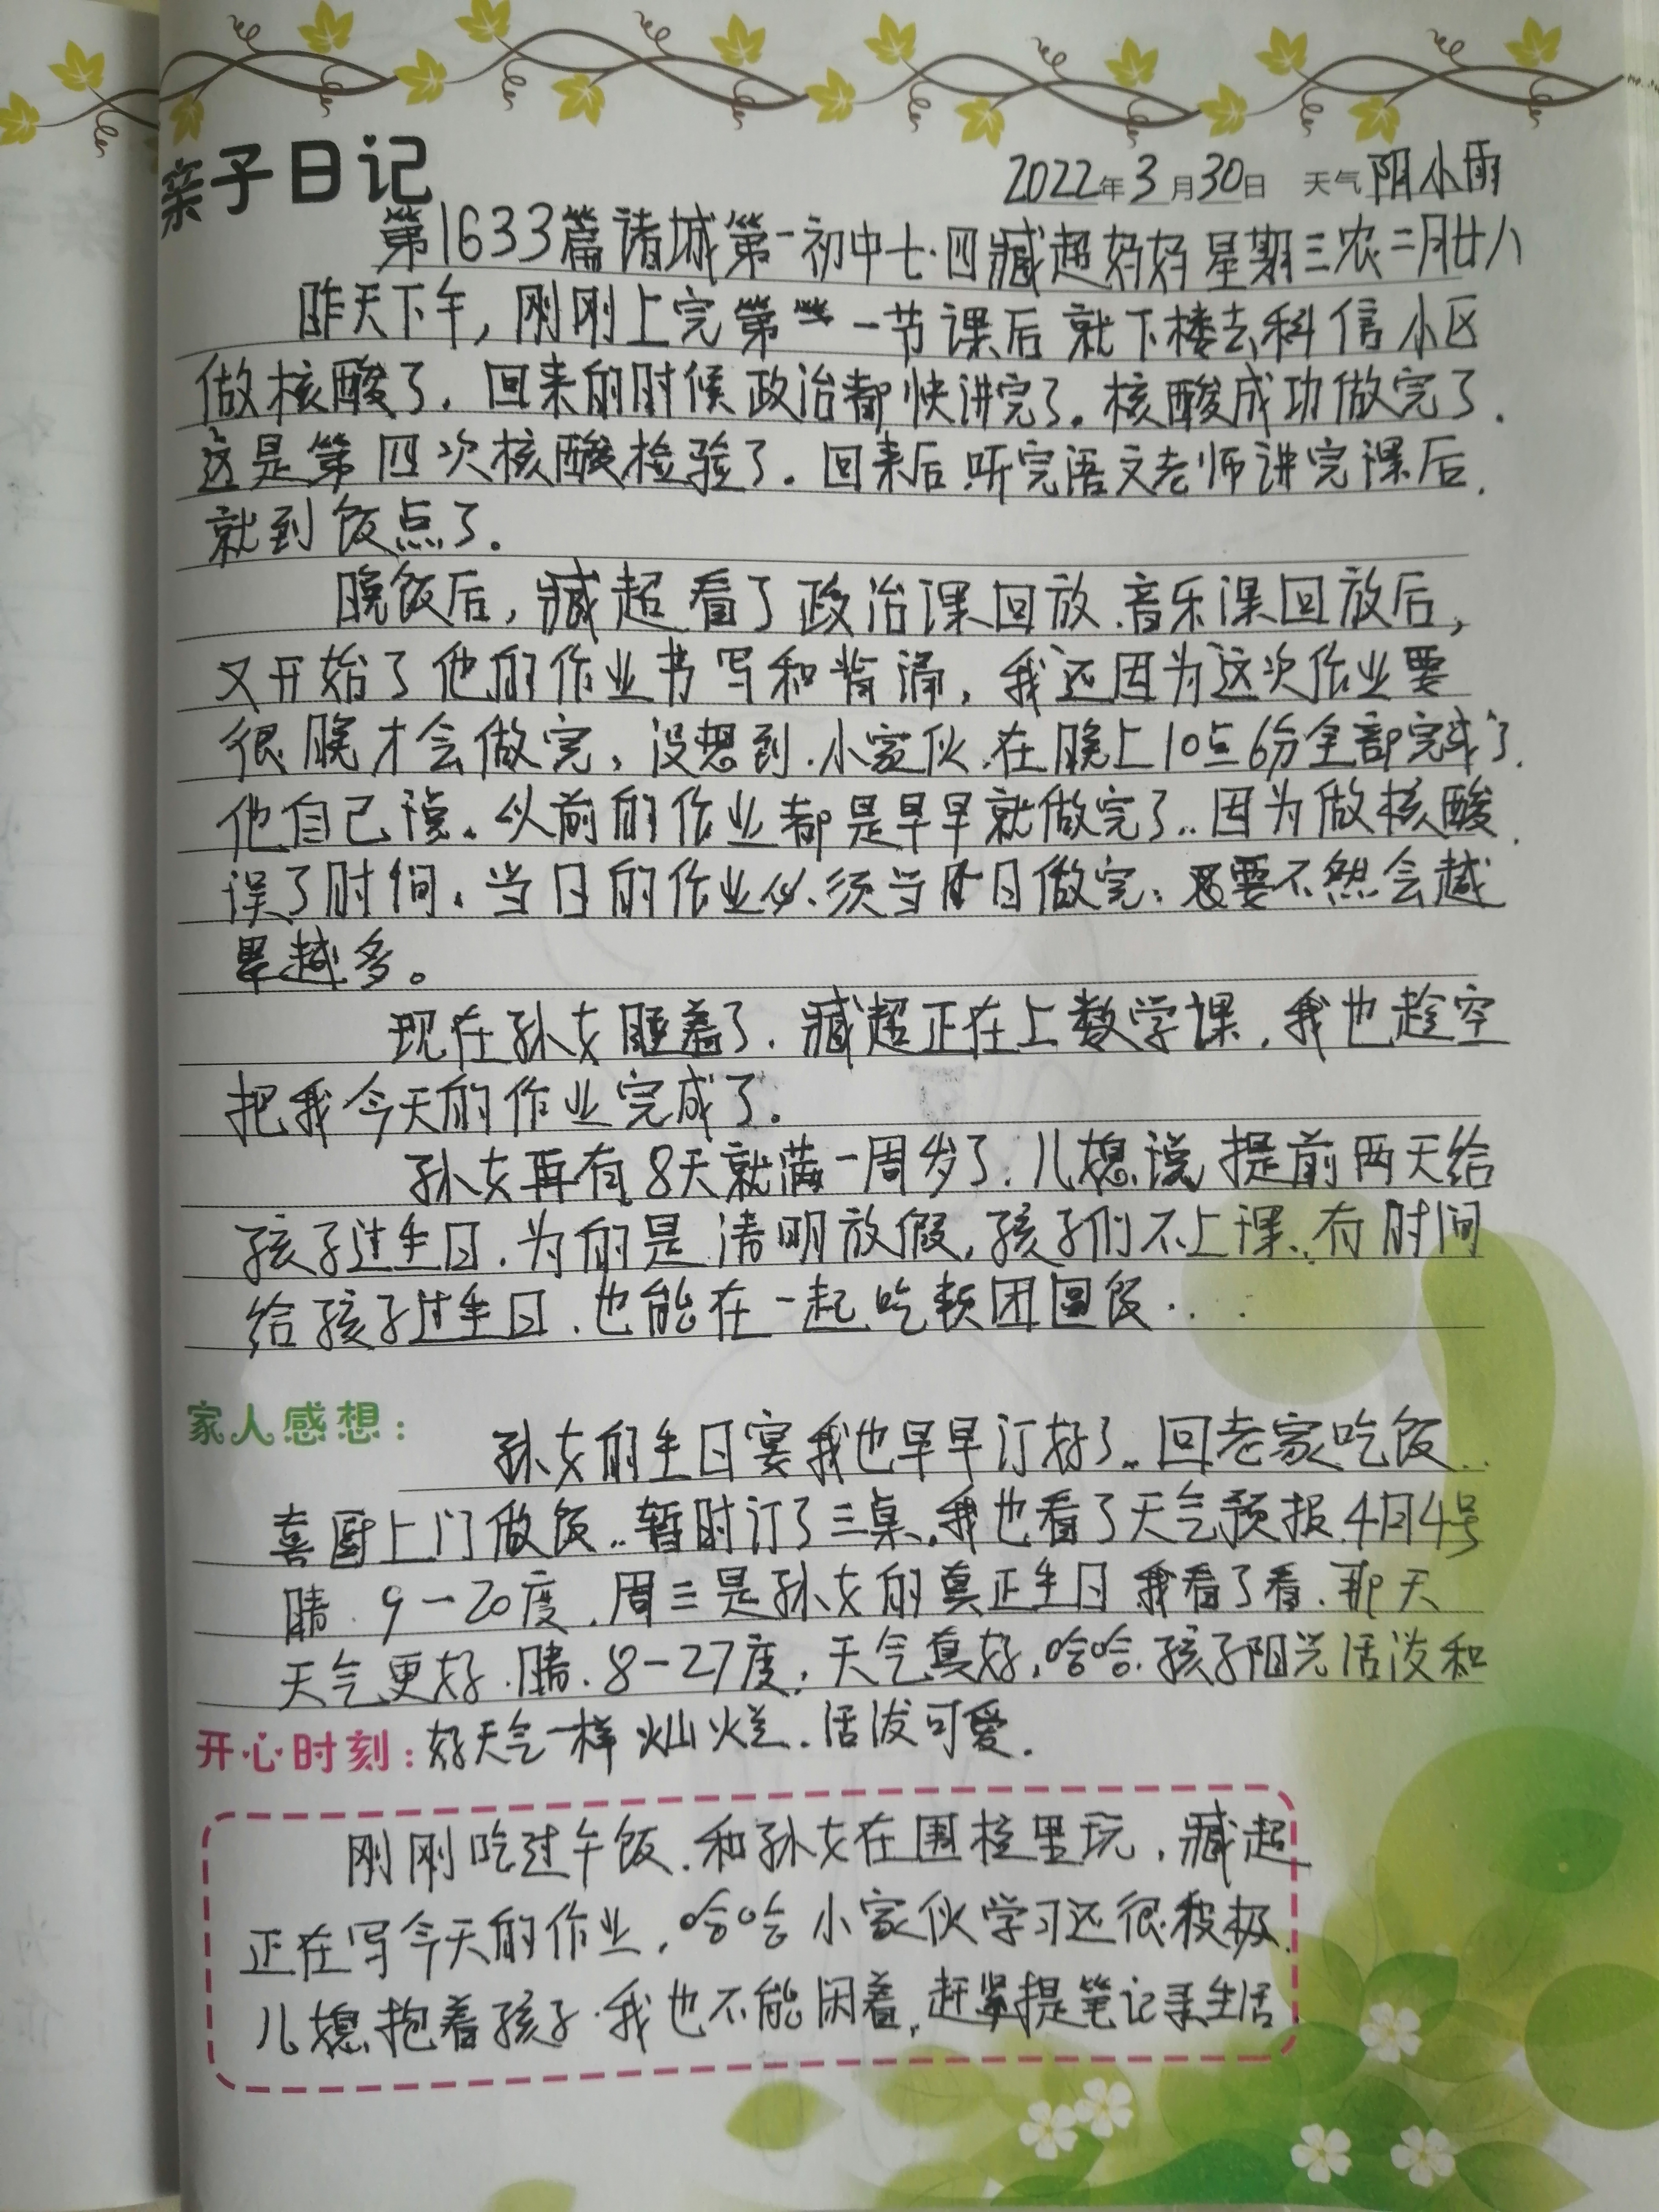 亲子日记
2022年3月30日 天气阴小雨
第1633篇诸城第一初中七·四臧超妈妈 星期三农二月廿八
昨天下午，刚刚上完第一节课后就下楼去科信小区
做核酸了．回来的时候政治都快讲完了。核酸成功做完了．
这是第四次核酸检验了。回来后听完语文老师讲完课后．
就到饭点了．
晚饭后，臧超看了政治课回放．音乐课回放后，
又开始了他的作业书写和背诵，我还因为这次作业要
很晚才会做完，没想到．小家伙．在晚上10点6分全部完成了．
他自己说。以前的作业都是早早就做完了..因为做核酸．
误了时间．当日的作业必须当日做完，要不然会越
累越多。
现在孙女睡着了．臧超正在上数学课．我也趁空
把我今天的作业完成了．
孙女再有8天就满一周岁了．儿媳说提前两天给
孩子过生日．为的是清明放假，孩子们不上课．有时间
给孩子过生日．也能在一起吃顿团圆饭...
家人感想：
孙女的生日宴我也早早订好了..回老家吃饭..
喜厨上门做饭..暂时订了三桌．我也看了天气预报．4月4号
晴．9－20度．周三是孙女的真正生日 我看了看．那天
天气更好．晴．8－27度，天气真好，哈哈．孩子阳光活泼和
开心时刻：好天气一样灿烂．活泼可爱．
刚刚吃过午饭．和孙女在围栏里玩，臧超
正在写今天的作业，哈哈 小家伙学习还很积极．
儿媳抱着孩子·我也不能闲着，赶紧提笔记录生活